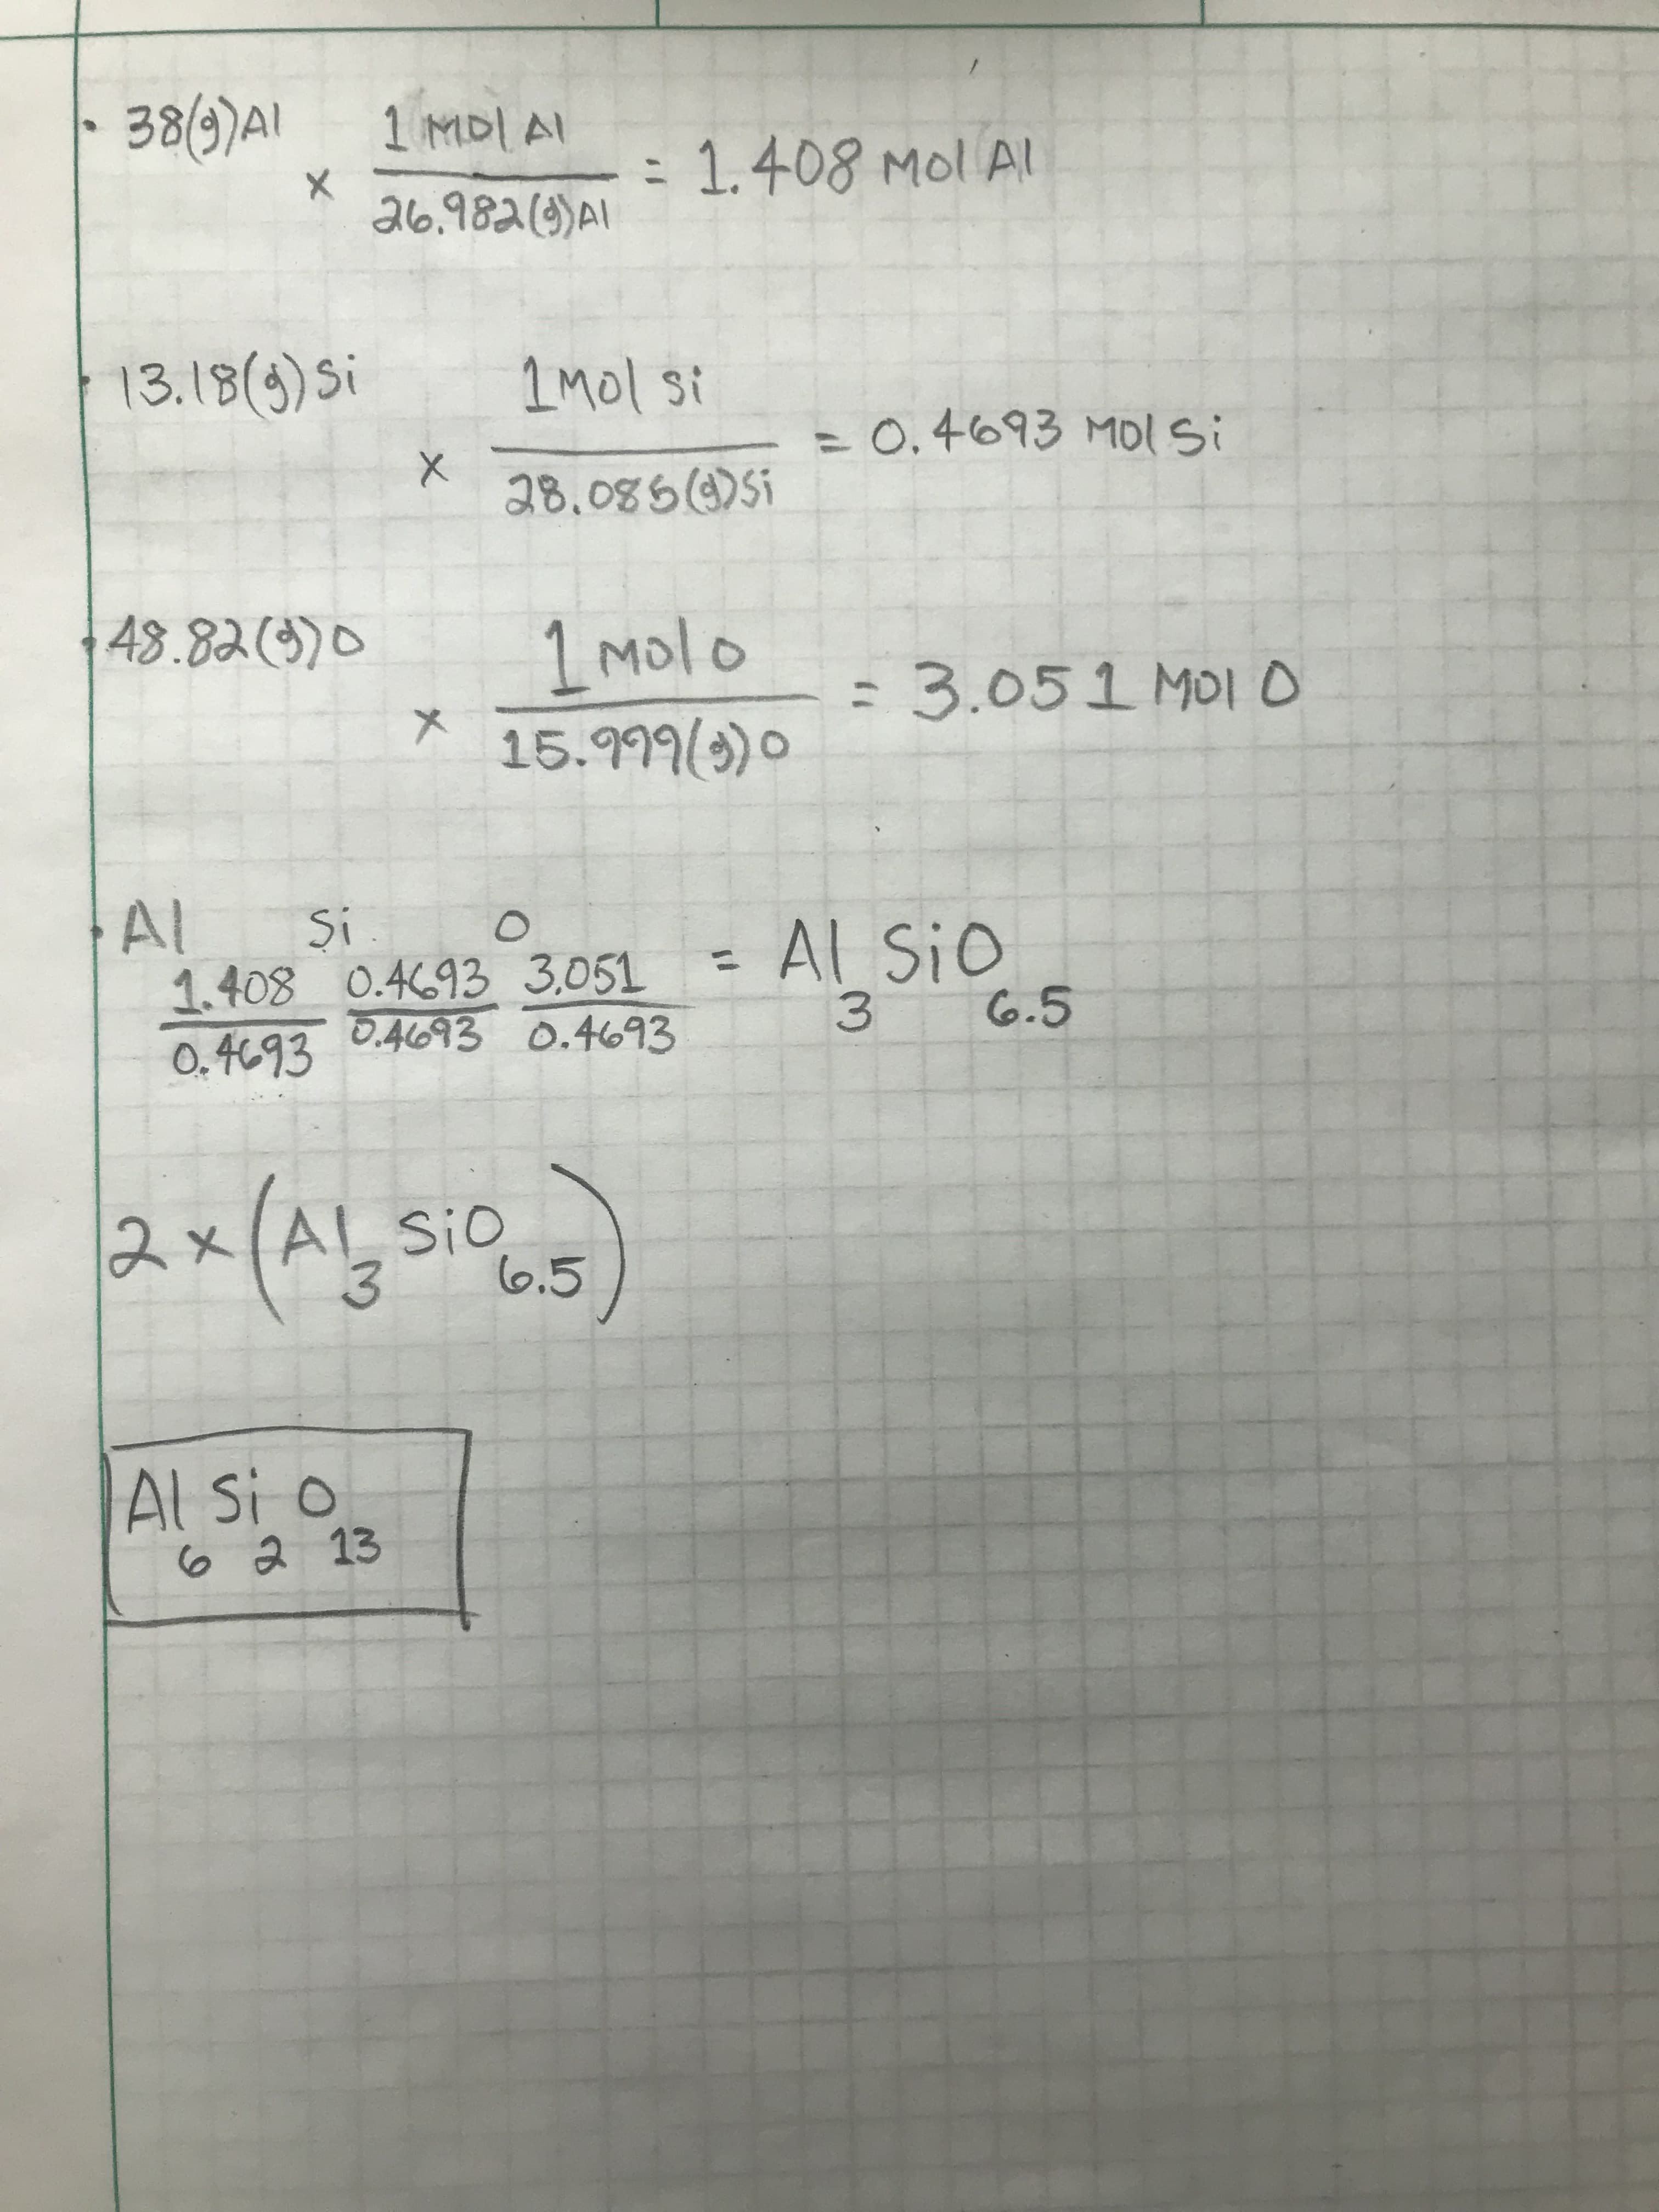 • 38(g)Al × 1 Mol Al / 26.982(g)Al = 1.408 Mol Al
• 13.18(g)Si × 1 Mol Si / 28.085(g)Si = 0.4693 Mol Si
• 48.82(g)O × 1 Mol O / 15.999(g)O = 3.051 Mol O
• Al Si O
1.408/0.4693 0.4693/0.4693 3.051/0.4693 = Al₃SiO₆.₅
2 × (Al₃SiO₆.₅)
Al₆Si₂O₁₃